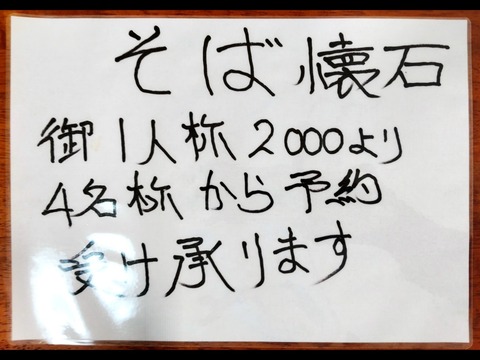 そば懐石
御1人称2000より
4名称から予約
受け承ります